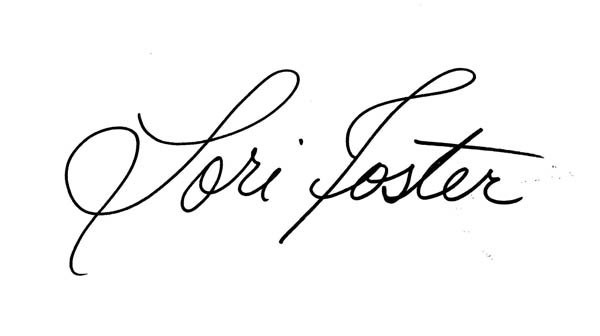 Lori Foster